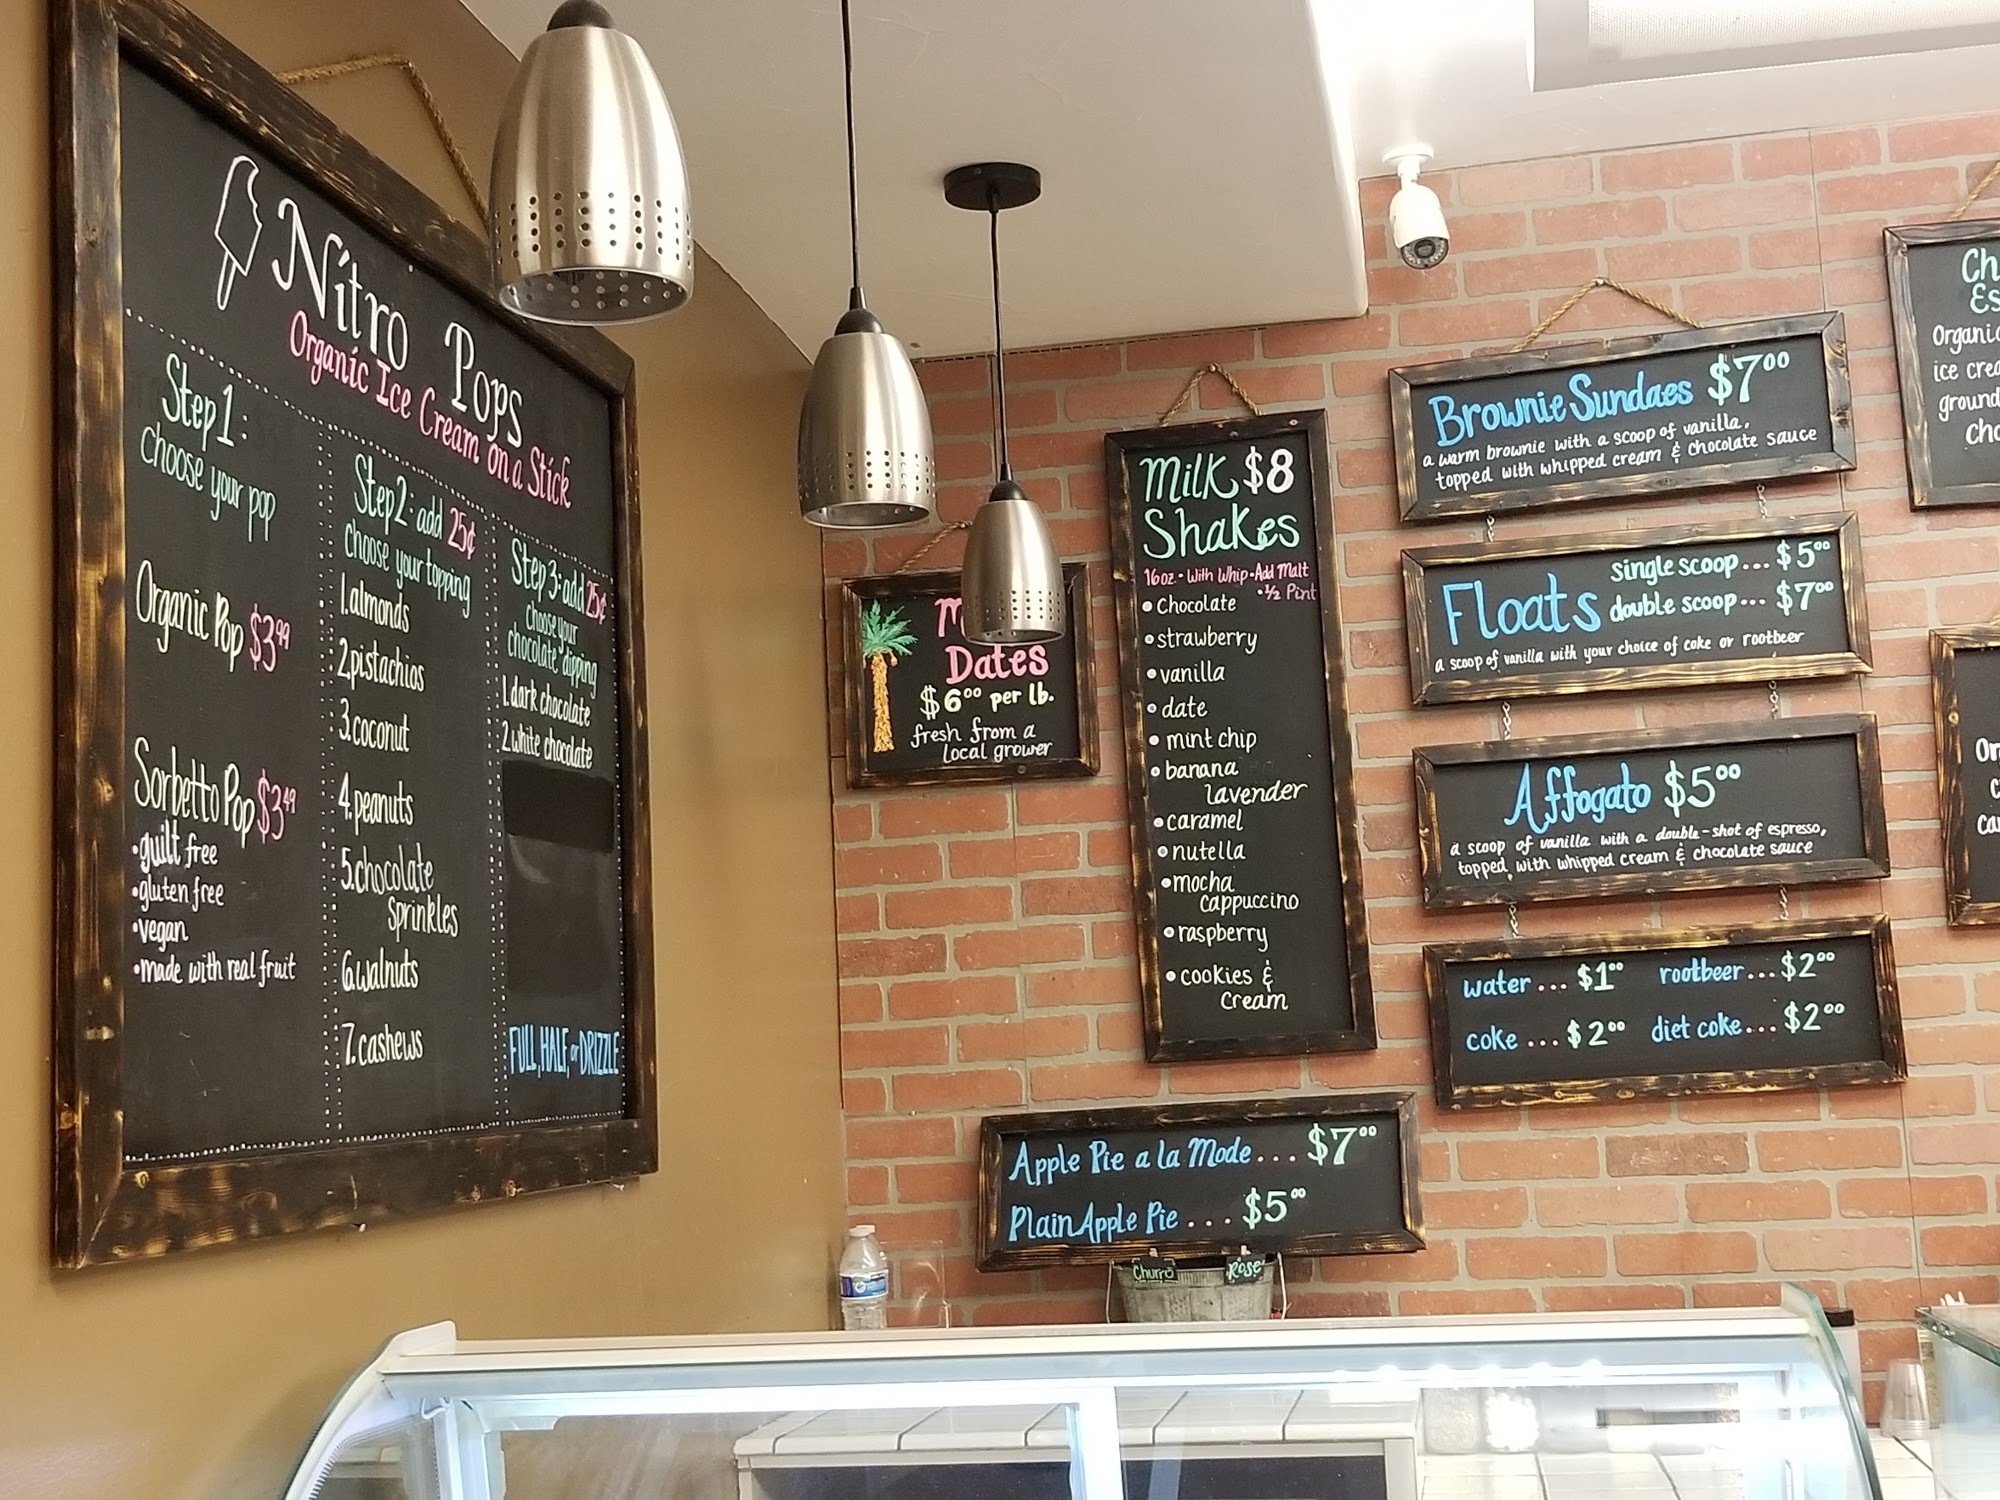 Nitro Pops
Organic Ice Cream on a Stick
Step 1:
choose your pop
Organic Pop $3.99
Sorbetto Pop $3.49
•guilt free
•gluten free
•vegan
•made with real fruit
Step 2: add 25¢
choose your topping
1.almonds
2.pistachios
3.coconut
4.peanuts
5.chocolate
Sprinkles
6.walnuts
7.cashews
Step 3: add 25¢
choose your
chocolate dipping
1.dark chocolate
2.white chocolate
FULL, HALF, or DRIZZLE
Dates
$6.00 per lb.
fresh from a
local grower
Milk $8
Shakes
16oz • With Whip • Add Malt
• ½ Pint
• Chocolate
• strawberry
• vanilla
• date
• mint chip
• banana
lavender
• caramel
• nutella
• mocha
cappuccino
• raspberry
• cookies &
cream
Brownie Sundaes $7.00
a warm brownie with a scoop of vanilla,
topped with whipped cream & chocolate sauce
single scoop... $5.00
Floats double scoop... $7.00
a scoop of vanilla with your choice of coke or rootbeer
Affogato $5.00
a scoop of vanilla with a double-shot of espresso,
topped with whipped cream & chocolate sauce
water ... $1.00 rootbeer ... $2.00
coke .... $2.00 diet coke ... $2.00
Apple Pie a la Mode.... $7.00
Plain Apple Pie .... $5.00
Churro
Rose
Organic
ground